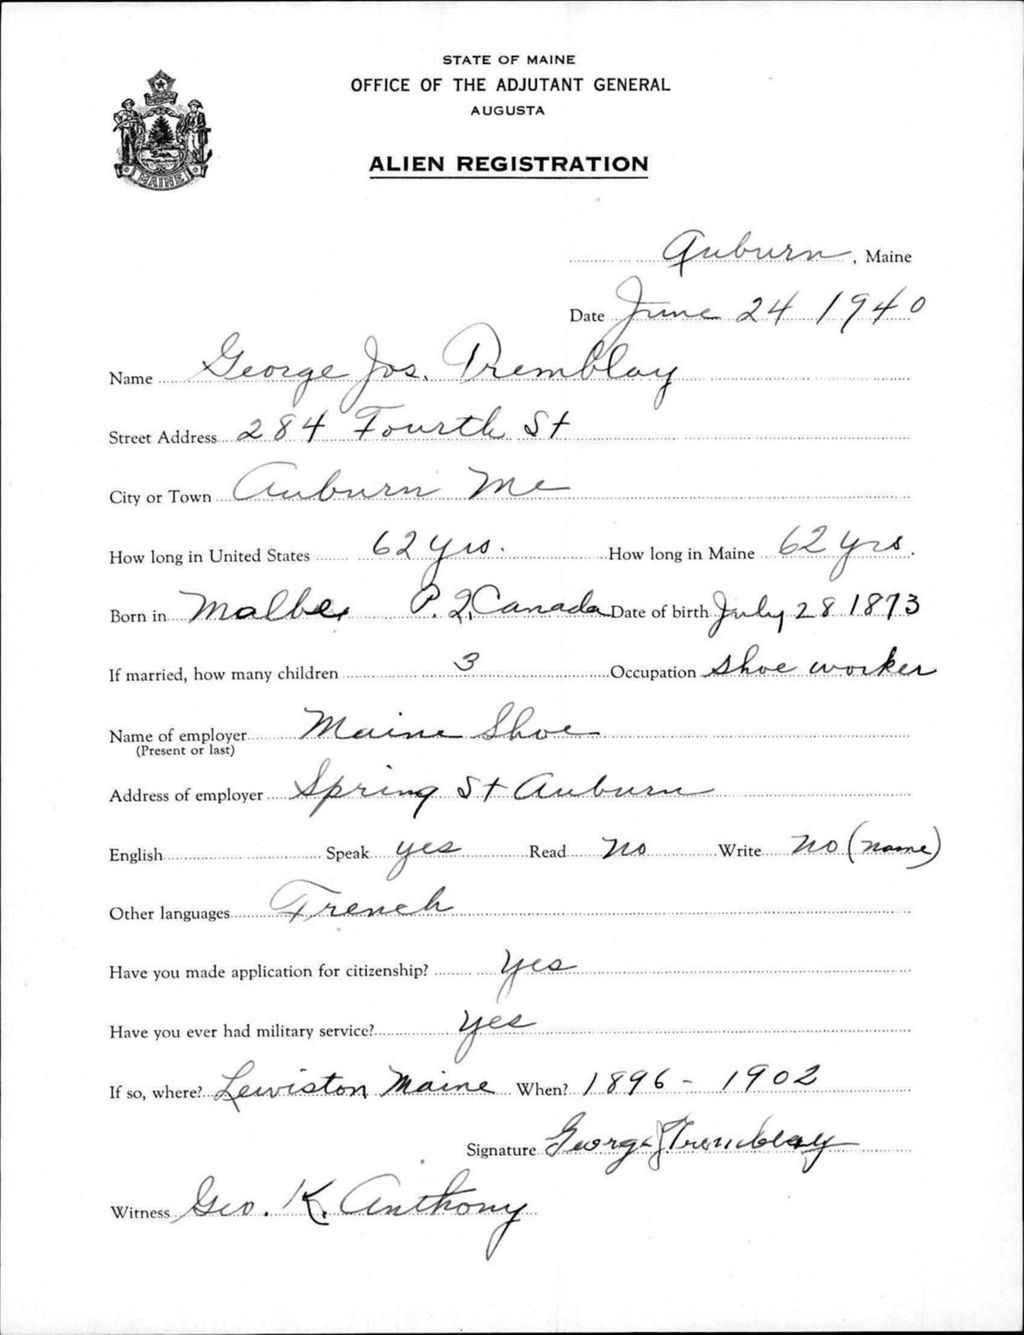 STATE OF MAINE
OFFICE OF THE ADJUTANT GENERAL
AUGUSTA
ALIEN REGISTRATION
MAINE
Auburn, Maine
Date June 24 1940
Name George Jos. Tremblay
Street Address 284 Fourth St
City or Town Auburn Me
How long in United States 62 yrs. How long in Maine 62 yrs.
Born in Malbe, P.Q. Canada Date of birth July 28 1873
If married, how many children 3 Occupation Shoe worker
Name of employer Maine Shoe
(Present or last)
Address of employer Spring St Auburn
English Speak yes Read no Write no (name)
Other languages French
Have you made application for citizenship? Yes
Have you ever had military service? Yes
If so, where? Lewiston Maine When? 1896 - 1902
Signature George J Tremblay
Witness Geo. K. Anthony